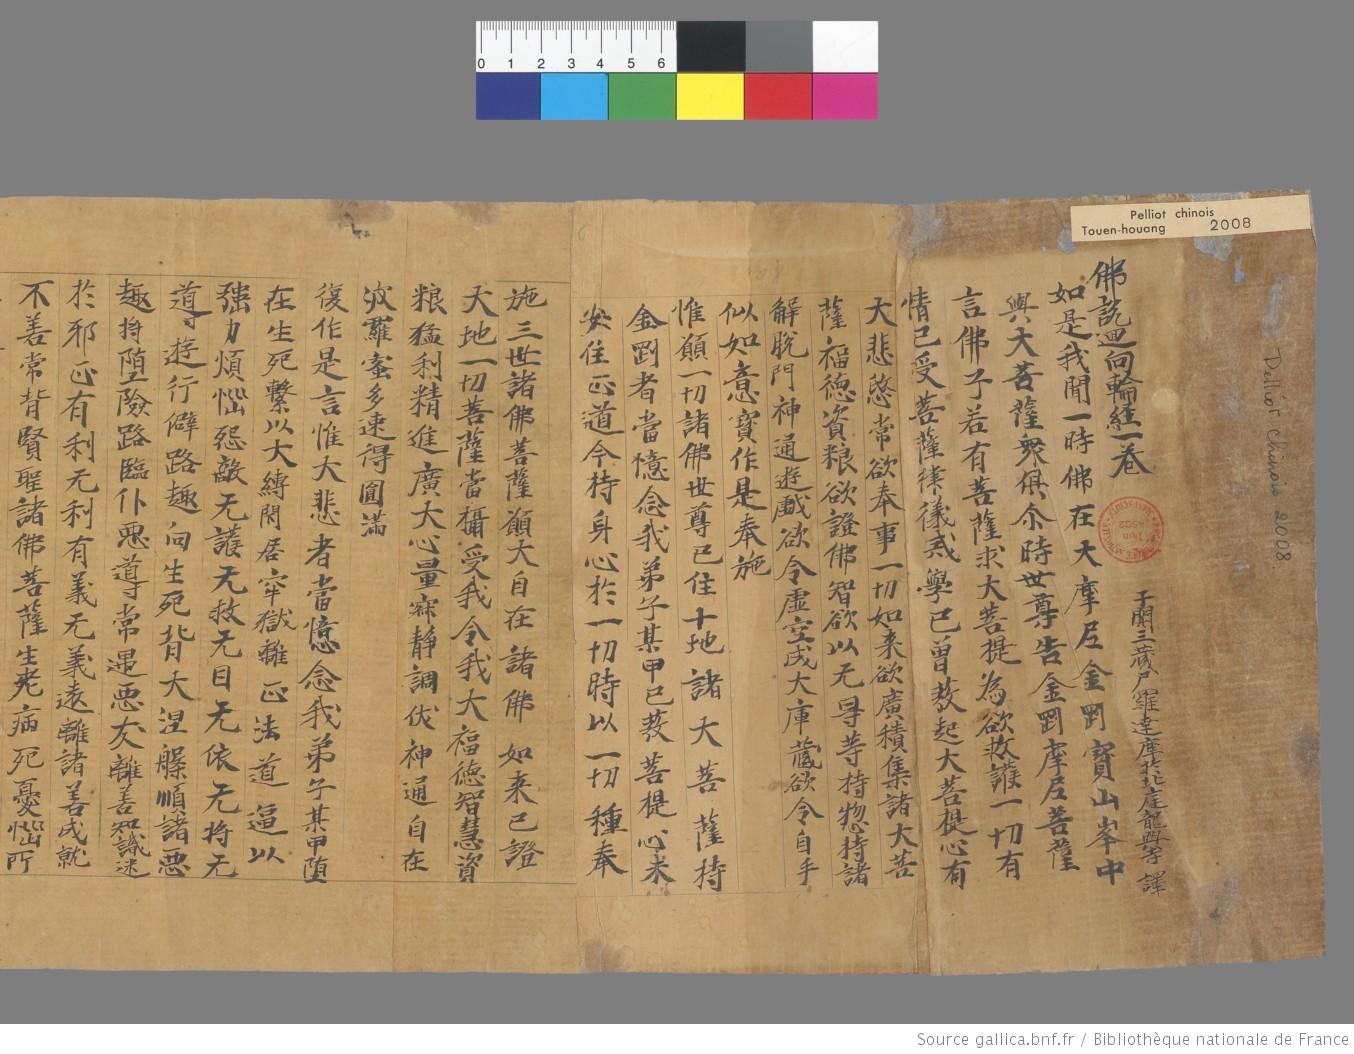 0 1 2 3 4 5 6
Pelliot chinois
Touen-houang 2008
Pelliot chinois 2008.
佛說迴向輪經一卷
于闐三藏尸羅達摩於北庭龍興寺譯
如是我聞一時佛在大摩尼金剛寶山峯中
與大菩薩衆俱尒時世尊告金剛摩尼菩薩
言佛子若有菩薩求大菩提為欲救護一切有
情已受菩薩律儀或學已曾發起大菩提心有
大悲愍常欲奉事一切如来欲廣積集諸大菩
薩福德資粮欲證佛智欲以无㝵等持惣持諸
解脫門神通遊戲欲令虛空成大庫藏欲令自手
似如意寶作是奉施
惟願一切諸佛世尊已住十地諸大菩薩持
金剛者當憶念我弟子某甲已發菩提心未
安住正道令持身心於一切時以一切種奉
施三世諸佛菩薩願大自在諸佛如来已證
大地一切菩薩當攝受我令我大福德智慧資
粮猛利精進廣大心量寂静調伏神通自在
波羅蜜多速得圓滿
復作是言惟大悲者當憶念我弟子某甲堕
在生死繫以大縛閇居牢獄離正法道逼以
強力煩惱怨敵无護无救无目无依无将无
導遊行僻路趣向生死背大涅槃順諸惡
趣将堕險路臨仆惡道常遇惡友離善知識迷
於邪正有利无利有義无義遠離諸善成就
不善常背賢聖諸佛菩薩生老病死憂惱所
Source gallica.bnf.fr / Bibliothèque nationale de France